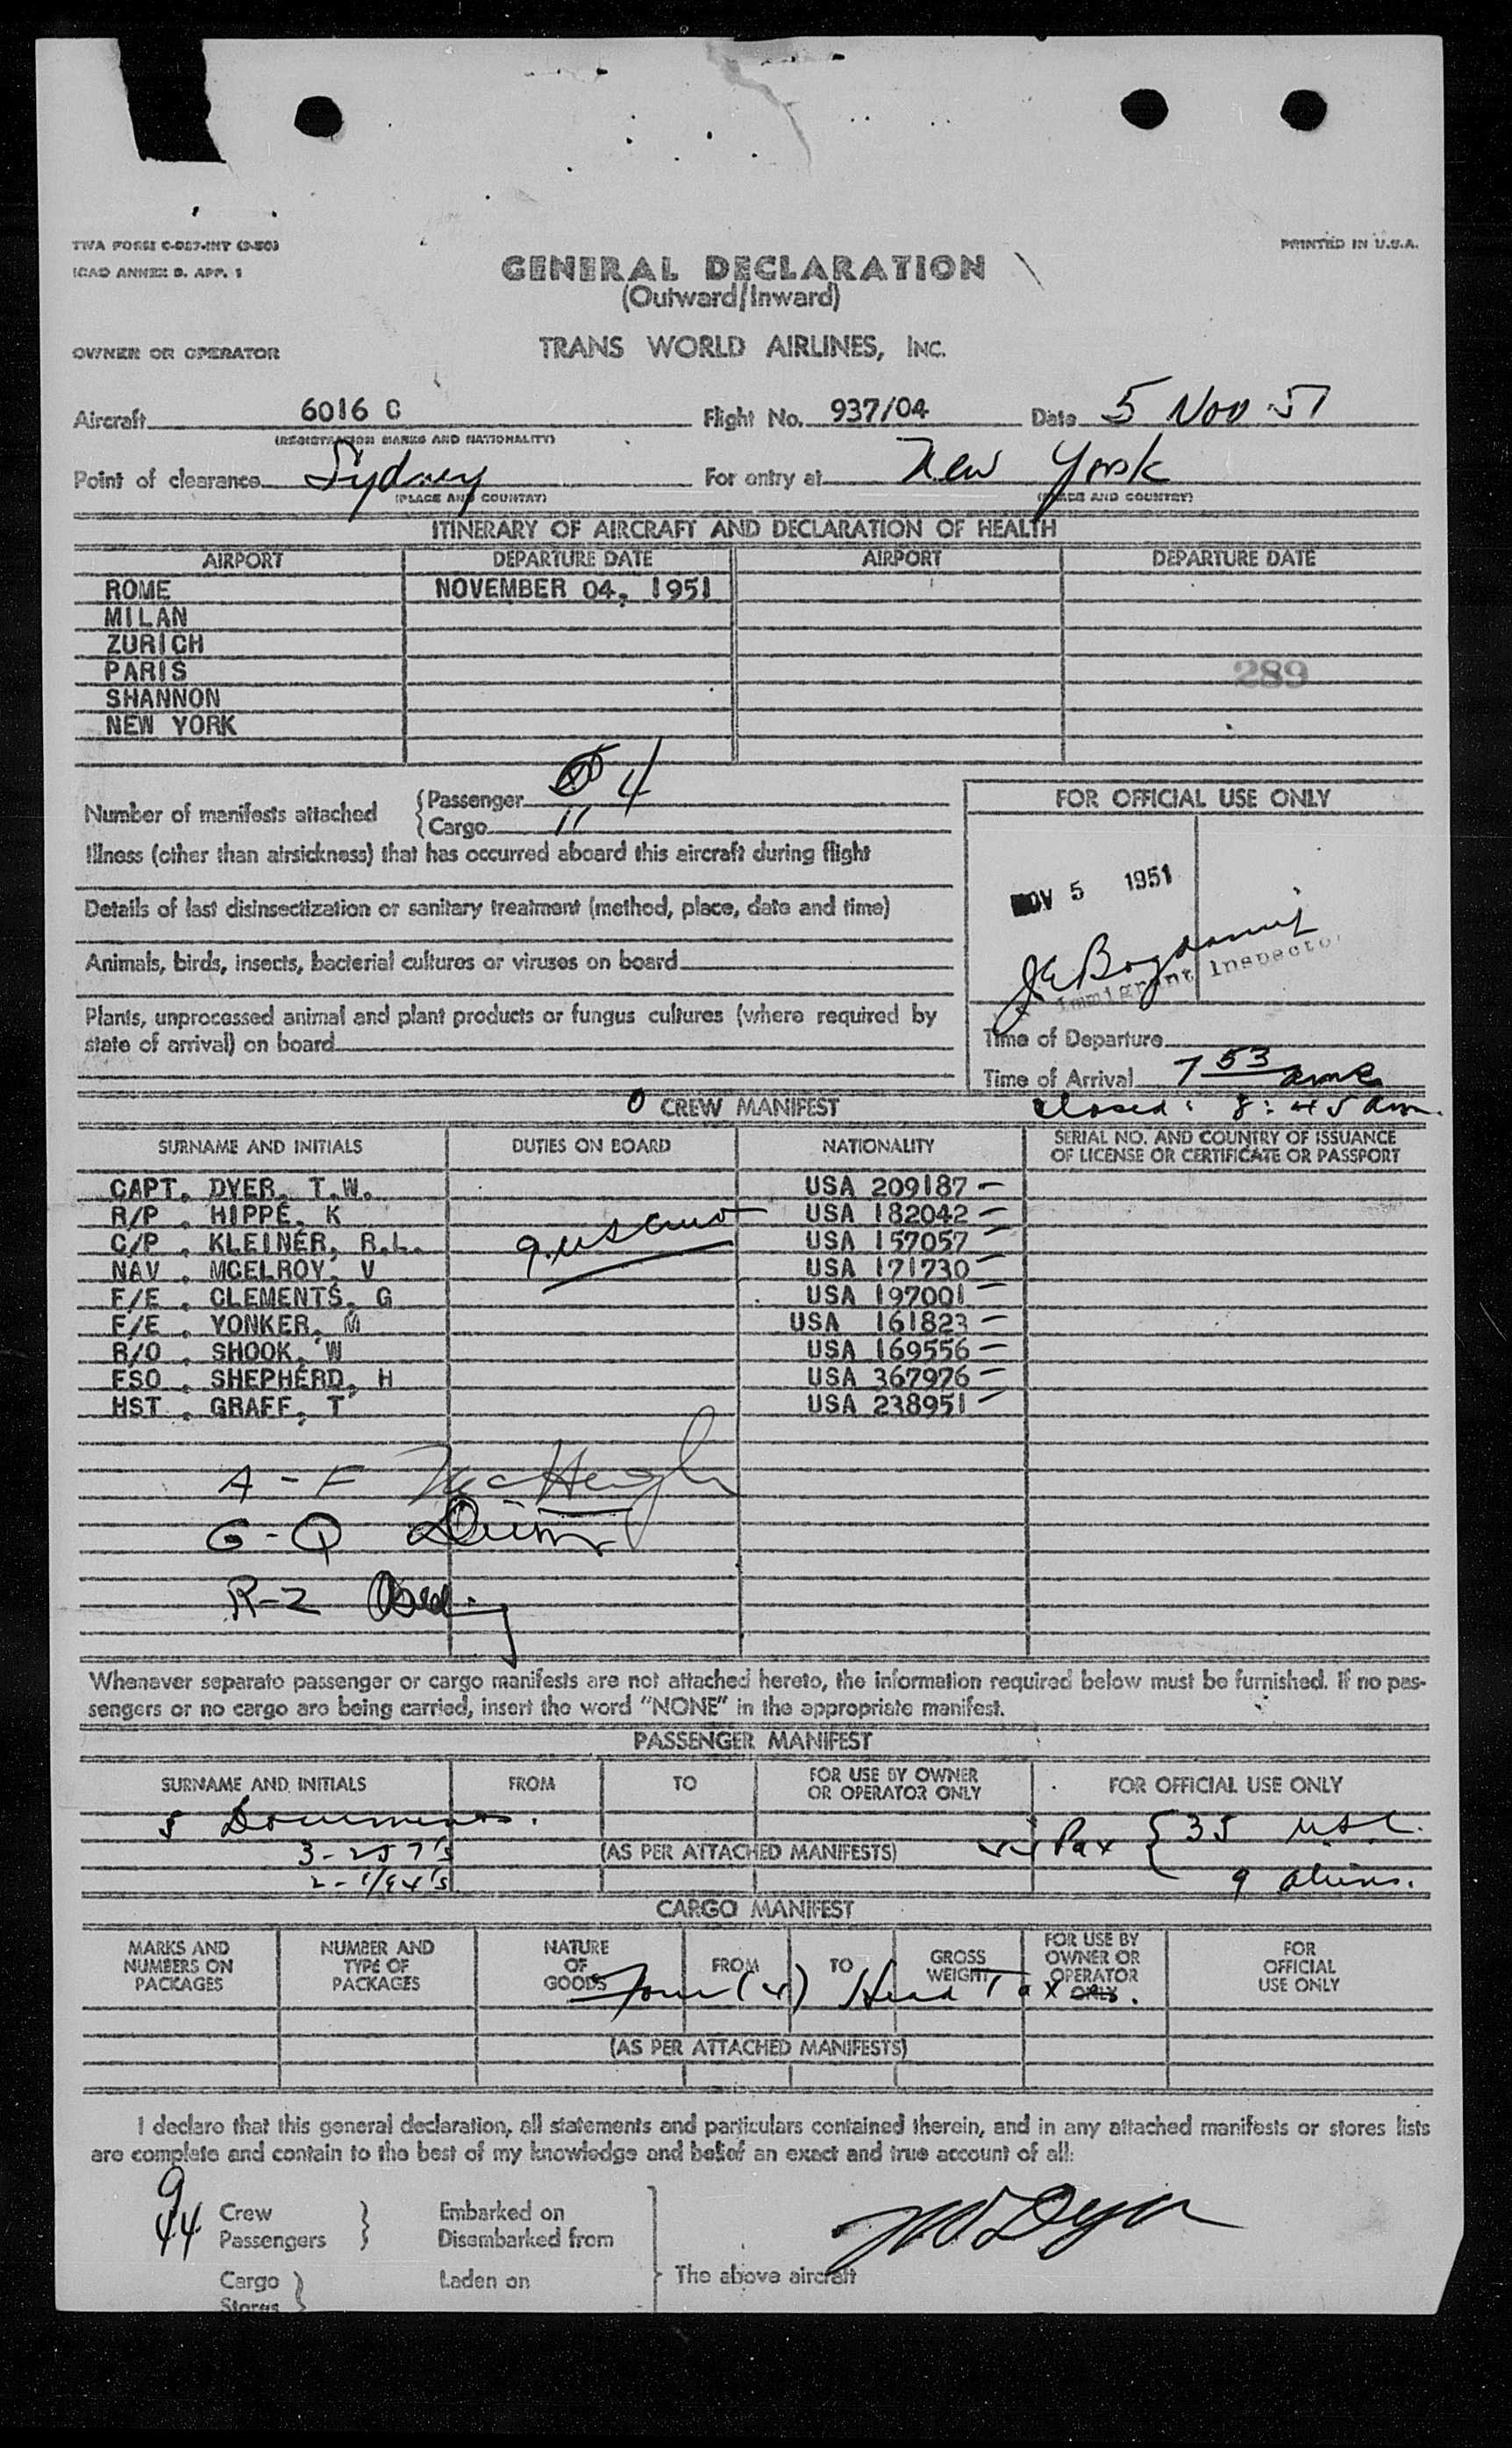 TWA FORM C-927-INT (3-50)
ICAO ANNEX 9. APP. 1
PRINTED IN U.S.A.
GENERAL DECLARATION
(Outward/Inward)
OWNER OR OPERATOR TRANS WORLD AIRLINES, INC.
Aircraft 6016 C Flight No. 937/04 Date 5 Nov 51
(REGISTRATION MARKS AND NATIONALITY)
Point of clearance Sydney For entry at New York
(PLACE AND COUNTRY) (PLACE AND COUNTRY)
ITINERARY OF AIRCRAFT AND DECLARATION OF HEALTH
AIRPORT DEPARTURE DATE AIRPORT DEPARTURE DATE
ROME NOVEMBER 04, 1951
MILAN
ZURICH
PARIS 289
SHANNON
NEW YORK
Number of manifests attached
Passenger 4
Cargo 11
FOR OFFICIAL USE ONLY
Illness (other than airsickness) that has occurred aboard this aircraft during flight
NOV 5 1951
Details of last disinsectization or sanitary treatment (method, place, date and time)
Animals, birds, insects, bacterial cultures or viruses on board
Immigrant Inspector
Plants, unprocessed animal and plant products or fungus cultures (where required by
state of arrival) on board
Time of Departure
Time of Arrival 7 53 am
closed: 8:45 am.
0 CREW MANIFEST
SURNAME AND INITIALS DUTIES ON BOARD NATIONALITY SERIAL NO. AND COUNTRY OF ISSUANCE
OF LICENSE OR CERTIFICATE OR PASSPORT
CAPT. DYER, T.W. USA 209187 -
R/P . HIPPE, K USA 182042 -
C/P . KLEINER, R.L. USA 157057 -
NAV . MCELROY, V USA 171730 -
F/E . CLEMENTS, G USA 197001 -
F/E . YONKER, M USA 161823 -
R/O . SHOOK, W USA 169556 -
FSO . SHEPHERD, H USA 367976 -
HST . GRAFF, T USA 238951 -
A - F McHugh
G - Q
R - Z
Whenever separate passenger or cargo manifests are not attached hereto, the information required below must be furnished. If no pas-
sengers or no cargo are being carried, insert the word "NONE" in the appropriate manifest.
PASSENGER MANIFEST
SURNAME AND INITIALS FROM TO FOR USE BY OWNER
OR OPERATOR ONLY FOR OFFICIAL USE ONLY
5 Documents.
3 - 257's (AS PER ATTACHED MANIFESTS) 44 Pax { 35 USC.
2 - 1/94's 9 aliens.
CARGO MANIFEST
MARKS AND
NUMBERS ON
PACKAGES
NUMBER AND
TYPE OF
PACKAGES
NATURE
OF
GOODS
FROM
TO
GROSS
WEIGHT
FOR USE BY
OWNER OR
OPERATOR
ONLY
FOR
OFFICIAL
USE ONLY
Four (4) Head Tax.
(AS PER ATTACHED MANIFESTS)
I declare that this general declaration, all statements and particulars contained therein, and in any attached manifests or stores lists
are complete and contain to the best of my knowledge and belief an exact and true account of all:
9 Crew
44 Passengers
Embarked on
Disembarked from
TW Dyer
Cargo
Stores
Laden on
The above aircraft